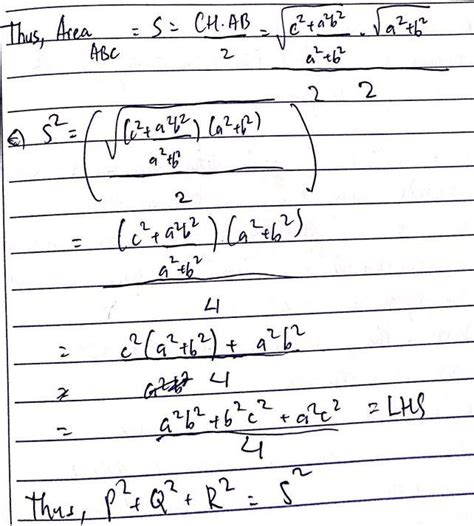 Thus, Area ABC = S = CH·AB / 2 = √(c² + a²b² / a²+b²) · √(a²+b²) / 2
2
c) S² = ( √((c² + a²b² / a²+b²)(a²+b²)) / 2 )
= (c² + a²b² / a²+b²) · (a²+b²) / 4
= c²(a²+b²) + a²b² / 4
= a²b² + b²c² + a²c² / 4 = LHS
Thus, P² + Q² + R² = S²